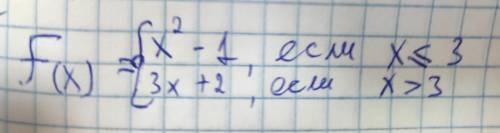 f(x) = { x² - 1, если x ≤ 3
3x + 2, если x > 3